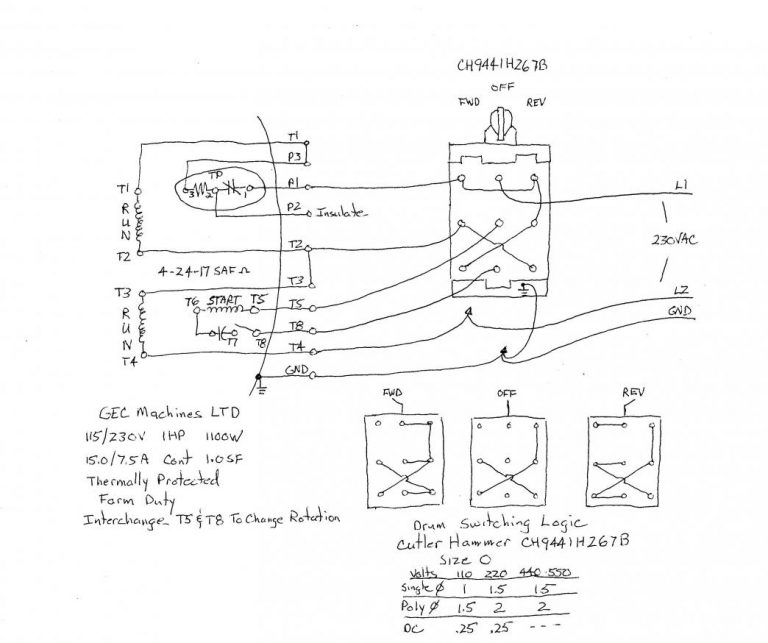 CH9441H267B
OFF
FWD REV
T1
P3
TP
3 2 1
P1
P2 Insulate
T1
RUN
T2
T2
L1
230VAC
L2
GND
4-24-17 SAF Ω
T3
T3
T6 START T5
T5
RUN
T7 T8
T8
T4
T4
GND
GEC Machines LTD
115/230V 1HP 1100W
15.0/7.5A Cont 1.0SF
Thermally Protected
Farm Duty
Interchange T5 & T8 To Change Rotation
FWD OFF REV
Drum Switching Logic
Cutler Hammer CH9441H267B
Size O
Volts 110 220 440-550
Single Ø 1 1.5 1.5
Poly Ø 1.5 2 2
DC .25 .25 ---